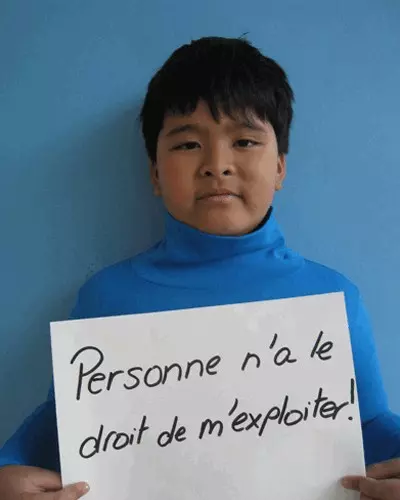 Personne n'a le
droit de m'exploiter!